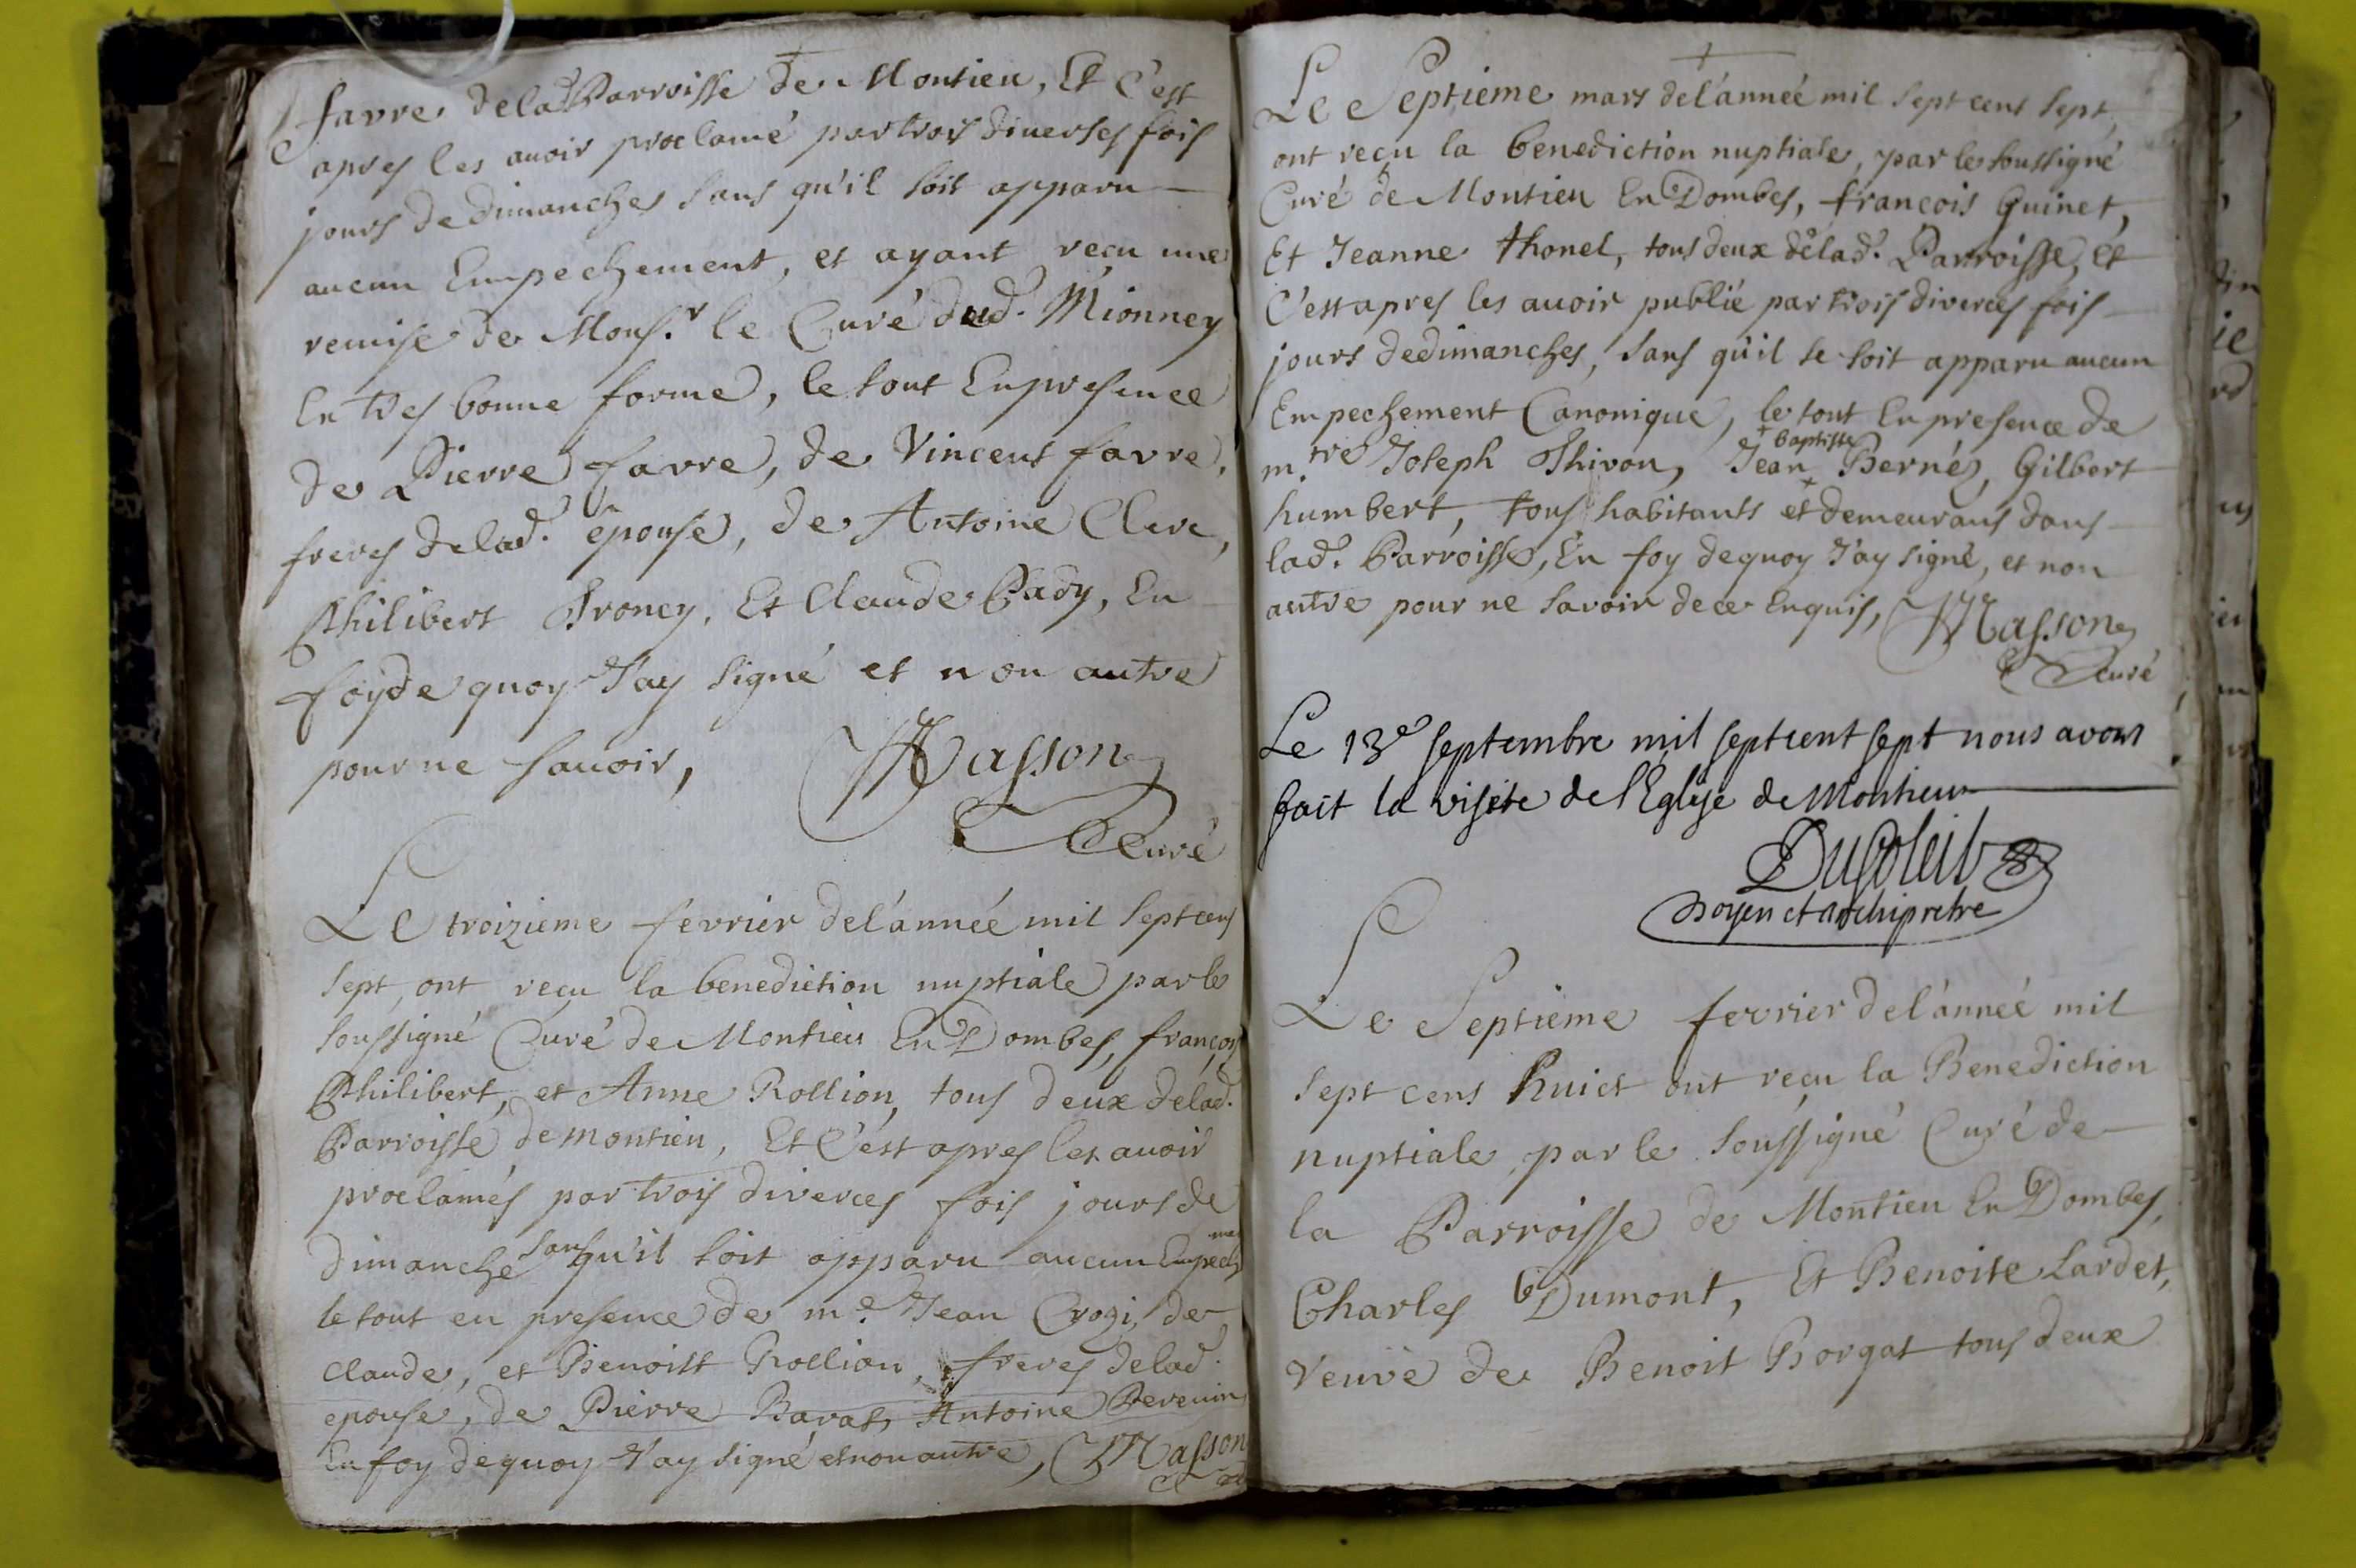 favre de lad. Parroisse de Montieu, Et C'est
apres les avoir proclamé par trois diverses fois
jours de dimanches sans qu'il soit apparu
aucun Empechement, et ayant recu une
remise de Mons.r le Curé dud. Mionney
En tres bonne forme, le tout En presence
de Pierre favre, de Vincent favre,
freres de lad. épouse, de Antoine Clerc,
Philibert Troncy, Et Claude Pady, En
foy de quoy J'ay signé et non autre
pour ne savoir, Masson
Curé
Le troizieme fevrier de l'année mil sept cens
sept, ont reçu la benediction nuptiale par le
soussigné Curé de Montieu En Dombes, françois
Philibert, et Anne Rollion, tous deux de lad.
Parroisse de montieu, Et C'est apres les avoir
proclamés par trois diverces fois jours de
dimanche sans qu'il soit apparu aucun Empechme
le tout en presence de m.e Jean Crozi, de
claude, et Benoist Rollion, freres de lad.
epouse, de Pierre Baras, Antoine Bevenin
En foy de quoy J'ay signé et non autre, Masson
Le Septieme mars de l'année mil sept cens sept,
ont reçu la benediction nuptiale, par le soussigné
Curé de Montieu En Dombes, françois Guinet,
Et Jeanne thonel, tous deux de lad. Parroisse, Et
C'est apres les avoir publié par trois diverces fois
jours de dimanches, sans qu'il se soit apparu aucun
Empechement Canonique, le tout En presence de
m.tre Joseph Thivon, Jean + baptiste Bernéz, Gilbert
humbert, tous habitants et demeurans dans
lad. Parroisse, En foy de quoy J'ay signé, et non
autre pour ne savoir de ce Enquis, Masson
curé
Le 13e septembre mil sept cent sept nous avons
fait la visite de l'Eglise de Montieu
Dusoleil
Doyen et archipretre
Le Septieme fevrier de l'année mil
sept cens huict ont reçu la Benediction
nuptiale, par le soussigné Curé de
la Parroisse de Montieu En Dombes,
Charles Dumont, Et Benoite Lardet,
Veuve de Benoit Borgat tous deux